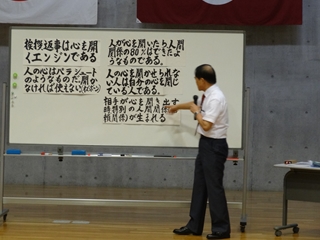 挨拶返事は心を開
くエンジンである
人の心はパラシュート
のようなものだ、開か
なければ使えない
人が心を開いたら人間
関係の80%はできたよ
うなものである。
人の心を開かせられな
い人は自分の心を閉じ
ている人である。
相手が心を開き出す
時特別の人間関係
頼関係)が生まれる